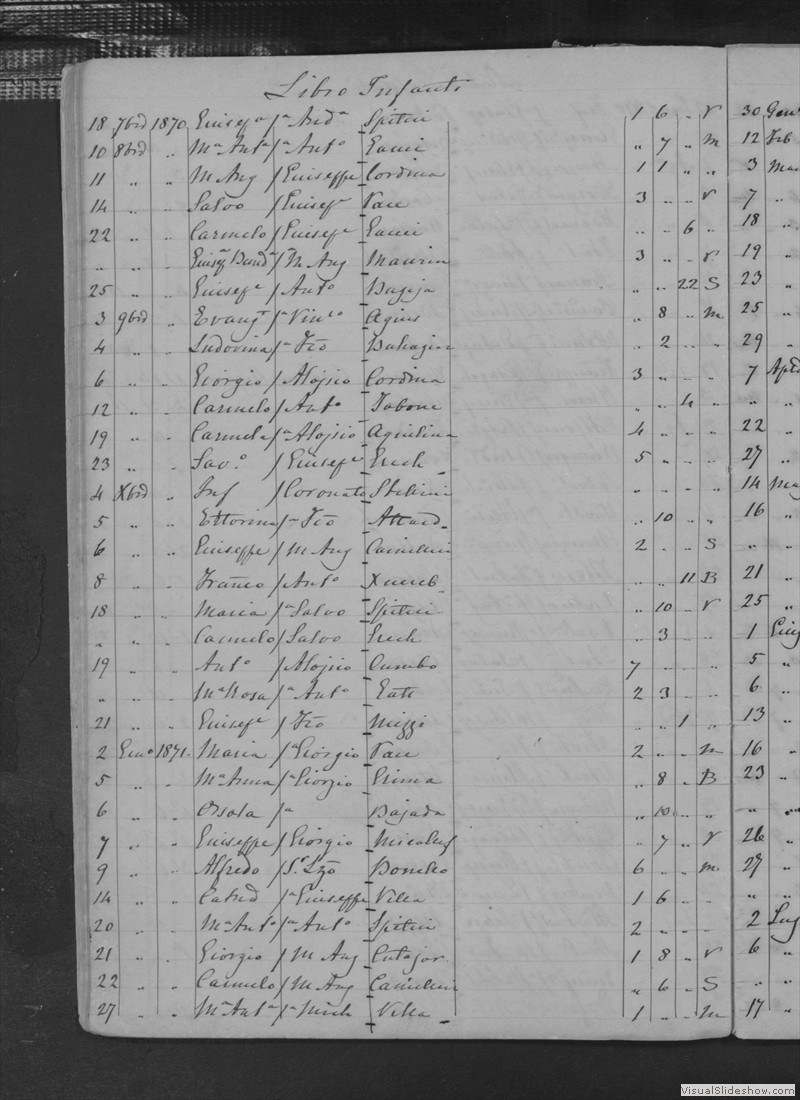 Libro Infanti
18 7bre 1870 Giusef.a f.a And.a Spiteri 1 6 .. V 30 Gen
10 8bre .. M.a Ant.a f.a Ant.o Gauci .. 7 .. M 12 Feb
11 .. .. M Ang f Giuseppe Cordina 1 1 .. .. 3 Mar
14 .. .. Salvo f Giusef.e Pace 3 .. .. V 7 ..
22 .. .. Carmelo f Giusef.e Gauci .. .. 6 .. 18 ..
.. .. .. f M Ang 3 .. .. V 19 ..
25 .. .. Giusef.e f Ant.o Bugeja .. .. 22 S 23 ..
3 9bre .. Evang.ta f.a Vin.zo Agius .. 8 .. M 25 ..
4 .. .. Ludovina f.a Fco Buhagiar .. 2 .. .. 29 ..
6 .. .. Giorgio f Alojsio Cordina 3 .. .. .. 7 Apr
12 .. .. Carmelo f Ant.o Tabone .. .. 4 .. .. ..
19 .. .. Carmela f.a Alojsio Aquilina 4 .. .. .. 22 ..
23 .. .. Sav.o f Giusef.e Grech 5 .. .. .. 27 ..
4 Xbre .. Inf f Coronato Stellini .. .. .. .. 14 Mag
5 .. .. Ettorina f.a Fco Attard .. 10 .. .. 16 ..
6 .. .. Giuseppe f M Ang Camilleri 2 .. .. S .. ..
8 .. .. Franco f Ant.o Xuereb .. .. 11 B 21 ..
18 .. .. Maria f.a Salvo Spiteri .. 10 .. V 25 ..
.. .. .. Carmelo f Salvo Grech .. 3 .. .. 1 Giug
19 .. .. Ant.o f Alojsio Cumbo 7 .. .. .. 5 ..
.. .. .. M.a Rosa f.a Ant.o Gatt 2 3 .. .. 6 ..
21 .. .. Giusef.e f Fco Mizzi .. .. 1 .. 13 ..
2 Gen.o 1871 Maria f.a Giorgio Pace 2 .. .. M 16 ..
5 .. .. M.a Anna f.a Giorgio Grima .. 8 .. B 23 ..
6 .. .. Orsola f.a Bajada .. 10 .. .. .. ..
7 .. .. Giuseppe f Giorgio Micallef .. 7 .. V 26 ..
9 .. .. Alfredo f Bonello 6 .. .. M 27 ..
14 .. .. f.a Giuseppe Vella 1 6 .. .. .. ..
20 .. .. M.a Ant.a f.a Ant.o Spiteri 2 .. .. .. 2 Lug
21 .. .. Giorgio f M Ang Cutajar 1 8 .. V 6 ..
22 .. .. Carmelo f M Ang Camilleri .. 6 .. S .. ..
27 .. .. M.a Ant.a f.a Mich Vella 1 .. .. M 17 ..
VisualSlideshow.com